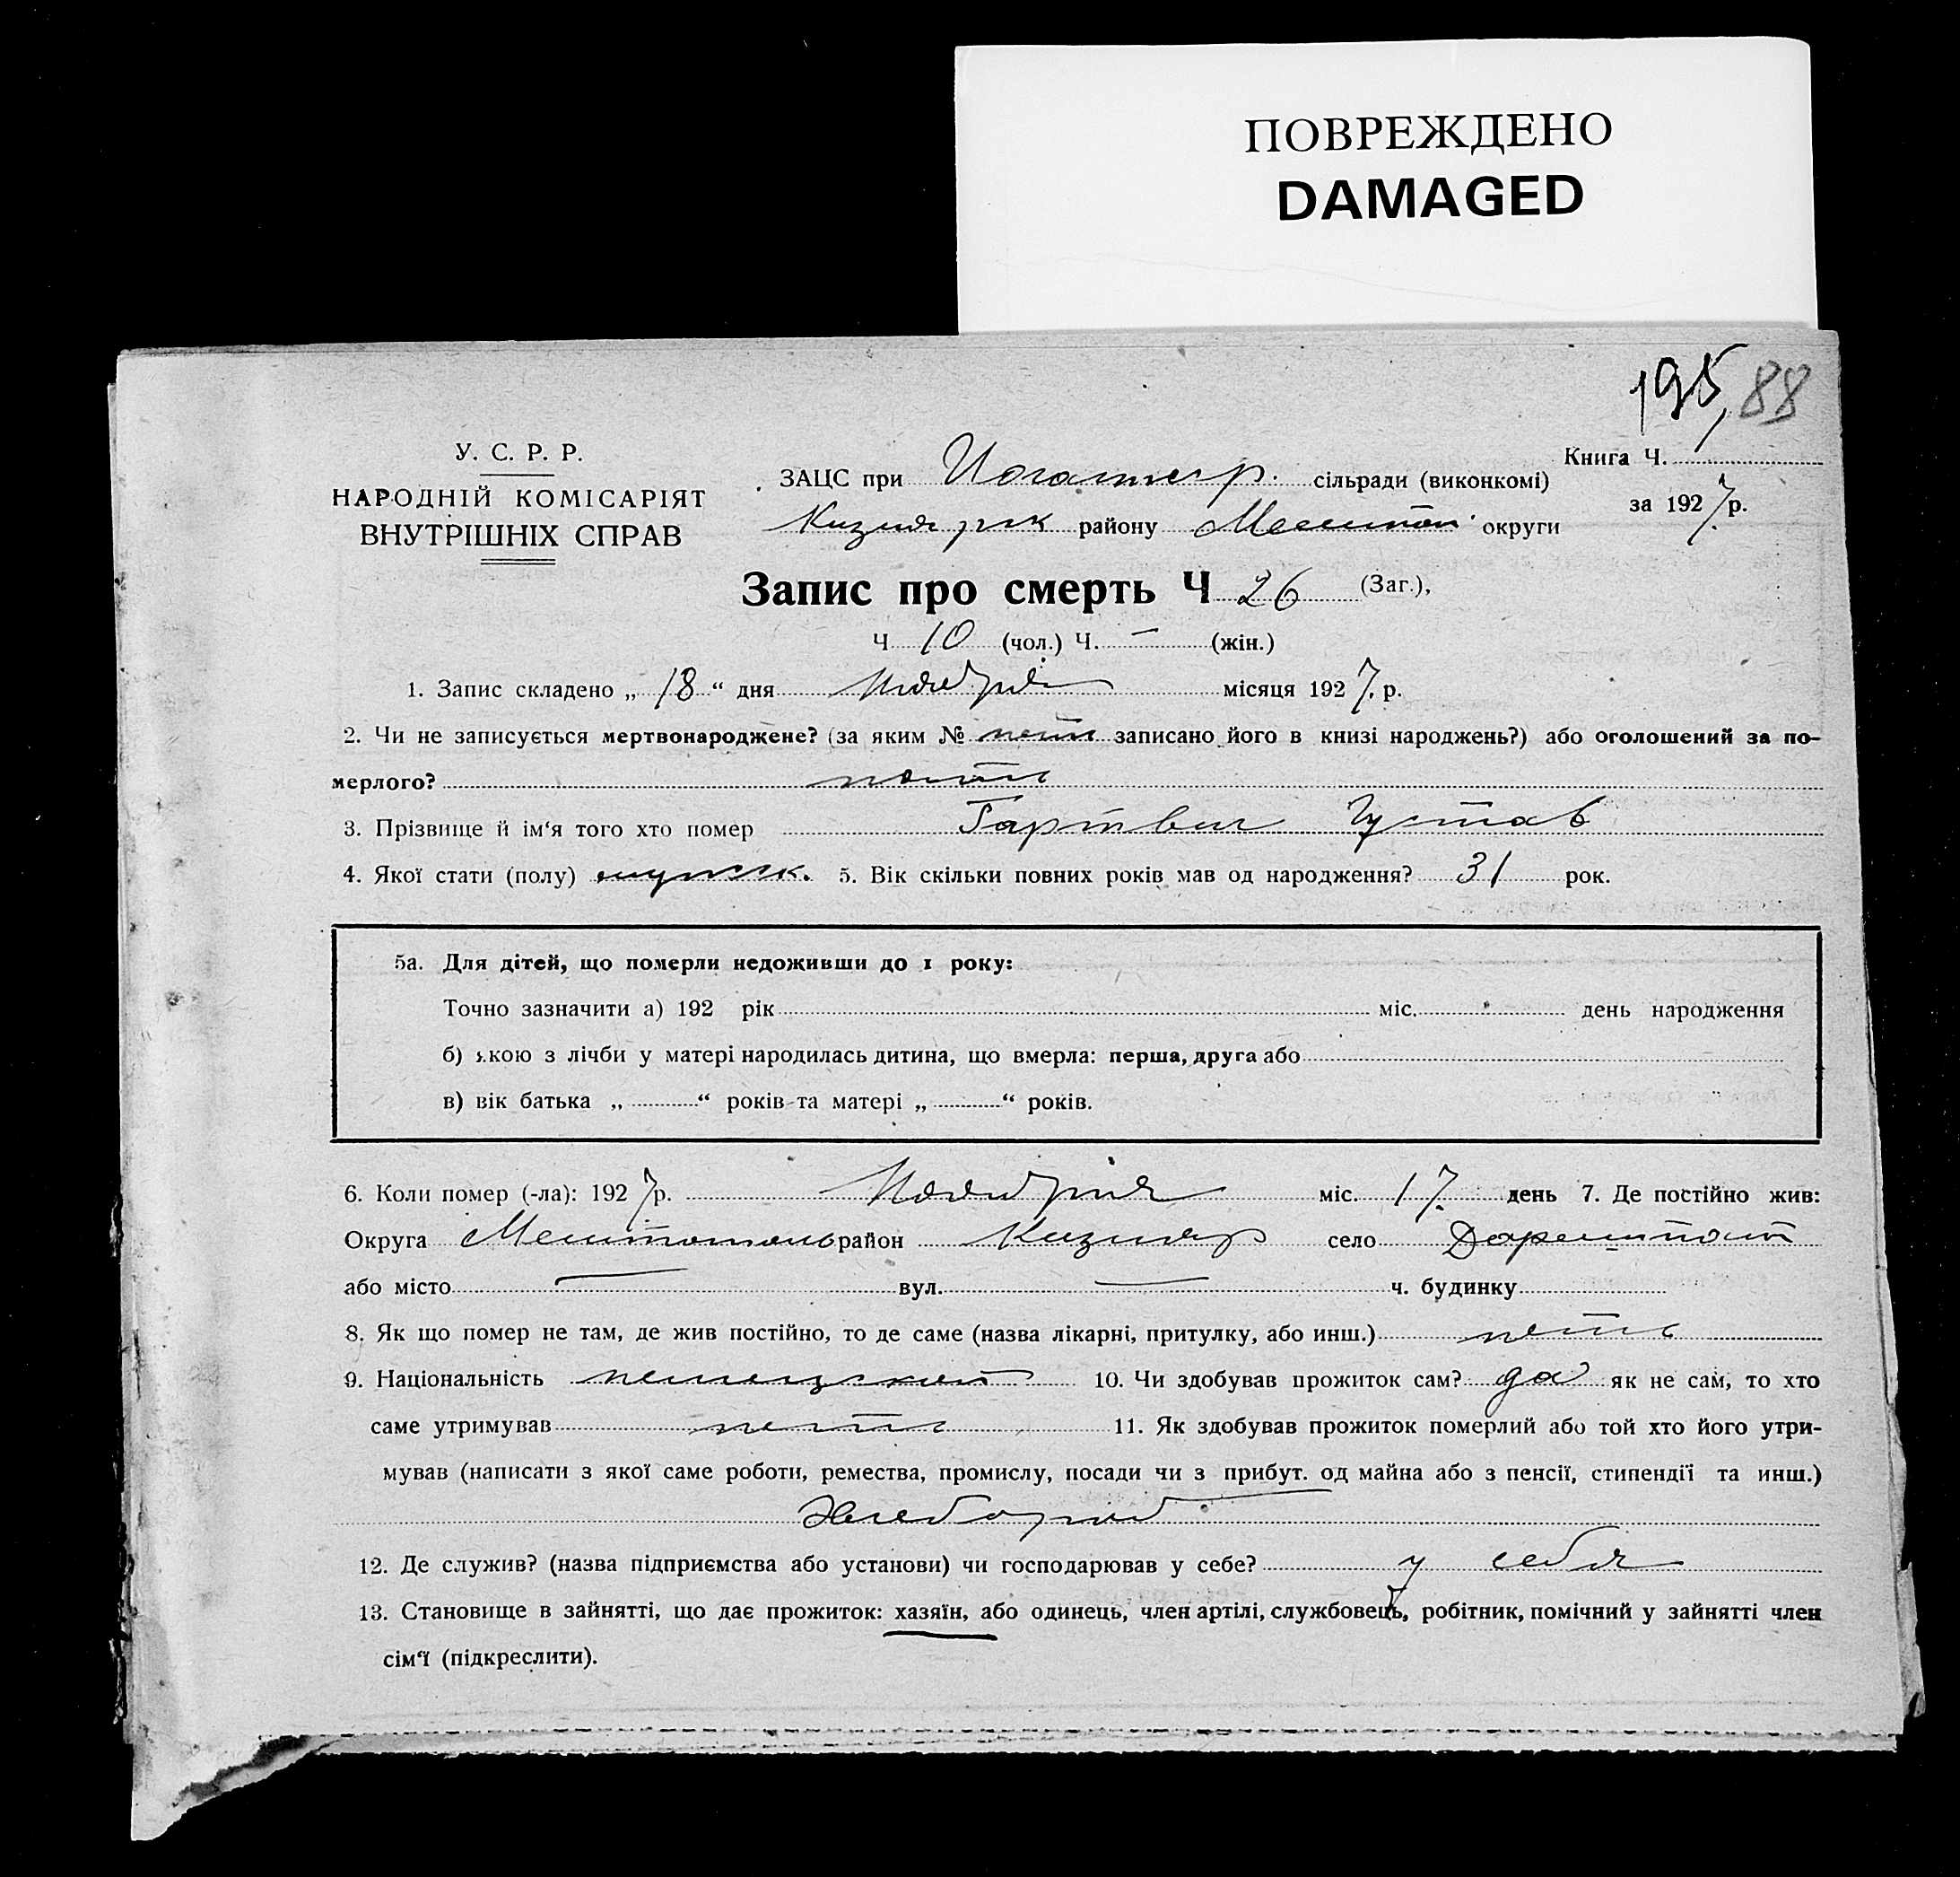 ПОВРЕЖДЕНО
DAMAGED
195, 88
У. С. Р. Р.
НАРОДНІЙ КОМІСАРІЯТ
ВНУТРІШНІХ СПРАВ
ЗАЦС при сільради (виконкомі)
району Мелитоп. округи
Книга Ч.
за 1927 р.
Запис про смерть Ч 26 (Заг.),
Ч 10 (чол.) Ч. — (жін.)
1. Запис складено „ 18 “ дня Ноября місяця 1927 р.
2. Чи не записується мертвонароджене? (за яким № нет записано його в книзі народжень?) або оголошений за по-
мерлого? нет
3. Прізвище й ім‘я того хто помер Гартвиг Густав
4. Якої стати (полу) мужск. 5. Вік скільки повних років мав од народження? 31 рок.
5а. Для дітей, що померли недоживши до 1 року:
Точно зазначити а) 192 рік міс. день народження
б) якою з лічби у матері народилась дитина, що вмерла: перша, друга або
в) вік батька „ “ років та матері „ “ років.
6. Коли помер (-ла): 1927 р. Ноября міс. 17 день 7. Де постійно жив:
Округа Мелитополь район Кизияр село Дармштат
або місто — вул. — ч. будинку
8. Як що помер не там, де жив постійно, то де саме (назва лікарні, притулку, або инш.) нет
9. Національність немецкой 10. Чи здобував прожиток сам? да як не сам, то хто
саме утримував нет 11. Як здобував прожиток померлий або той хто його утри-
мував (написати з якої саме роботи, ремества, промислу, посади чи з прибут. од майна або з пенсії, стипендії та инш.)
Хлебороб
12. Де служив? (назва підприємства або установи) чи господарював у себе? у себя
13. Становище в зайнятті, що дає прожиток: хазяїн, або одинець, член артілі, службовець, робітник, помічний у зайнятті член
сім‘ї (підкреслити).